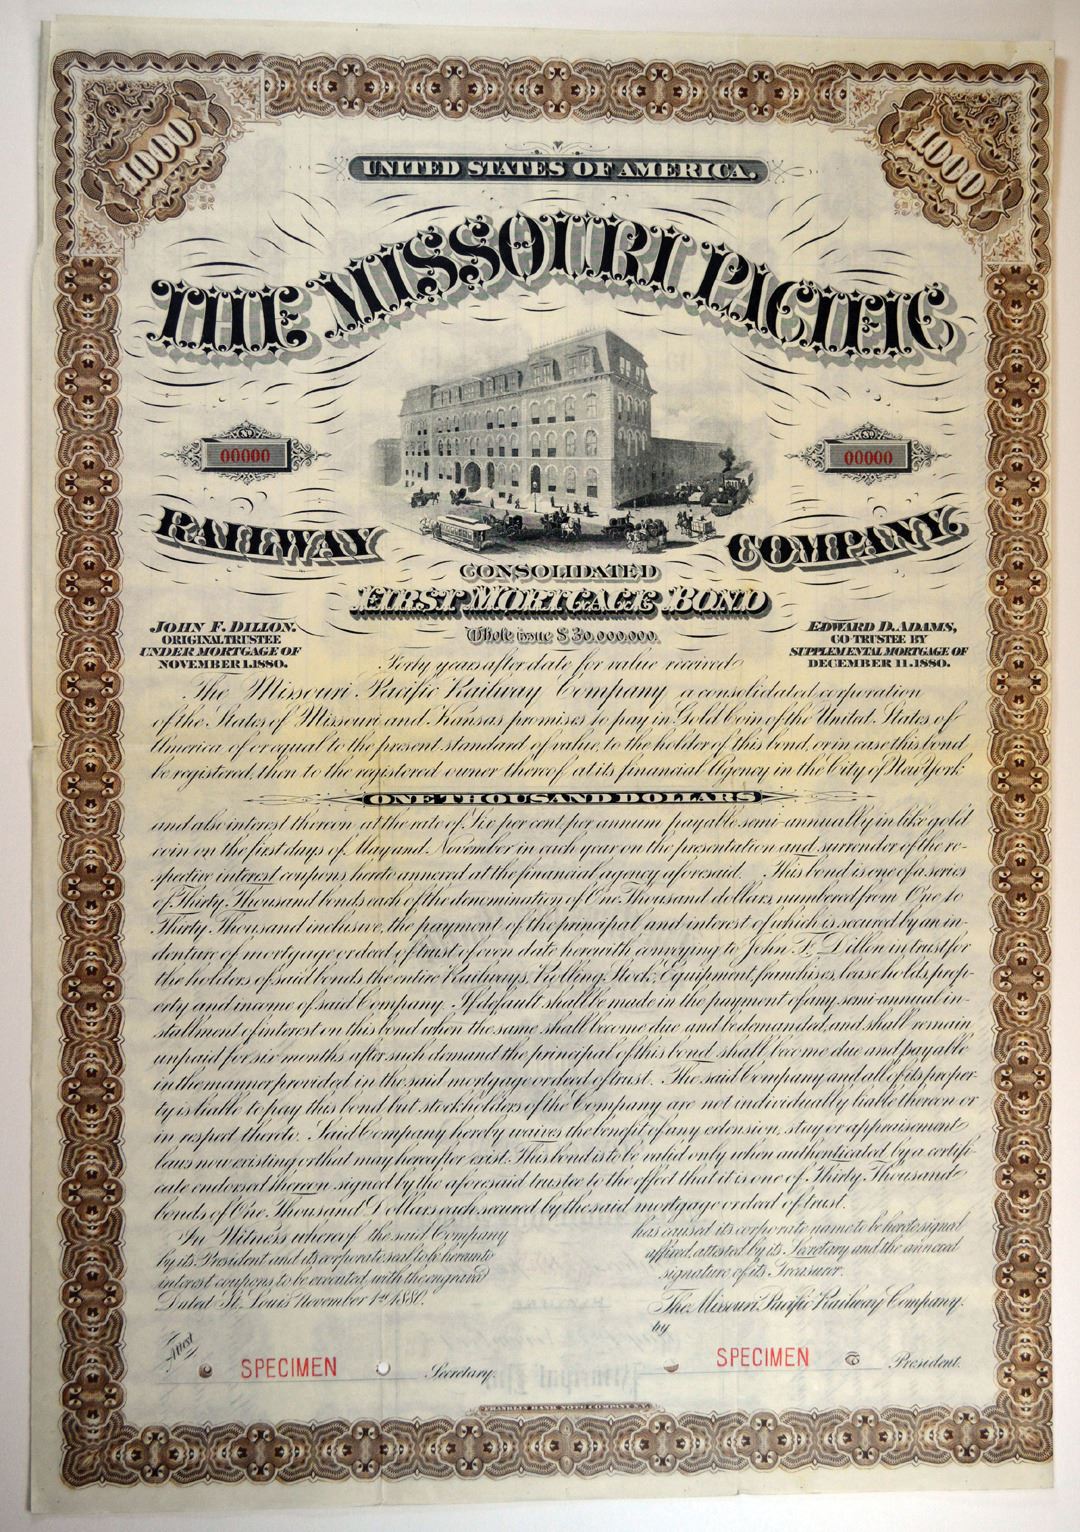 1000
1000
UNITED STATES OF AMERICA.
THE MISSOURI PACIFIC
00000
00000
RAILWAY COMPANY.
CONSOLIDATED
FIRST MORTGAGE BOND
Whole issue $30,000,000.
JOHN F. DILLON.
ORIGINAL TRUSTEE
UNDER MORTGAGE OF
NOVEMBER 1.1880.
EDWARD D. ADAMS,
CO-TRUSTEE BY
SUPPLEMENTAL MORTGAGE OF
DECEMBER 11.1880.
Forty years after date for value received
The Missouri Pacific Railway Company a consolidated corporation
of the States of Missouri and Kansas promises to pay in Gold Coin of the United States of
America of or equal to the present standard of value, to the holder of this bond, or in case this bond
be registered, then to the registered owner thereof at its financial Agency in the City of New York
ONE THOUSAND DOLLARS
and also interest thereon at the rate of Six per cent per annum payable semi-annually in like gold
coin on the first days of May and November in each year on the presentation and surrender of the re-
spective interest coupons hereto annexed at the financial agency aforesaid. This bond is one of a series
of Thirty Thousand bonds each of the denomination of One Thousand dollars numbered from One to
Thirty Thousand inclusive, the payment of the principal and interest of which is secured by an in-
denture of mortgage or deed of trust of even date herewith conveying to John F. Dillon in trust for
the holders of said bonds the entire Railways, Rolling Stock, Equipment, franchises, lease holds, prop-
erty and income of said Company. If default shall be made in the payment of any semi-annual in-
stallment of interest on this bond when the same shall become due and be demanded, and shall remain
unpaid for six months after such demand the principal of this bond shall become due and payable
in the manner provided in the said mortgage or deed of trust. The said Company and all of its proper-
ty is liable to pay this bond but stockholders of the Company are not individually liable thereon or
in respect thereto. Said Company hereby waives the benefit of any extension, stay or appraisement
laws now existing or that may hereafter exist. This bond is to be valid only when authenticated by a certifi-
cate endorsed thereon signed by the aforesaid trustee to the effect that it is one of Thirty Thousand
bonds of One Thousand Dollars each secured by the said mortgage or deed of trust.
In Witness whereof the said Company
by its President and its corporate seal to be hereunto
interest coupons to be executed with the engraved
Dated St. Louis November 1st 1880.
has caused its corporate name to be hereto signed
affixed, attested by its Secretary and the annexed
signature of its Treasurer.
The Missouri Pacific Railway Company.
by
Attest
SPECIMEN
Secretary.
SPECIMEN
President.
FRANKLIN BANK NOTE COMPANY N.Y.